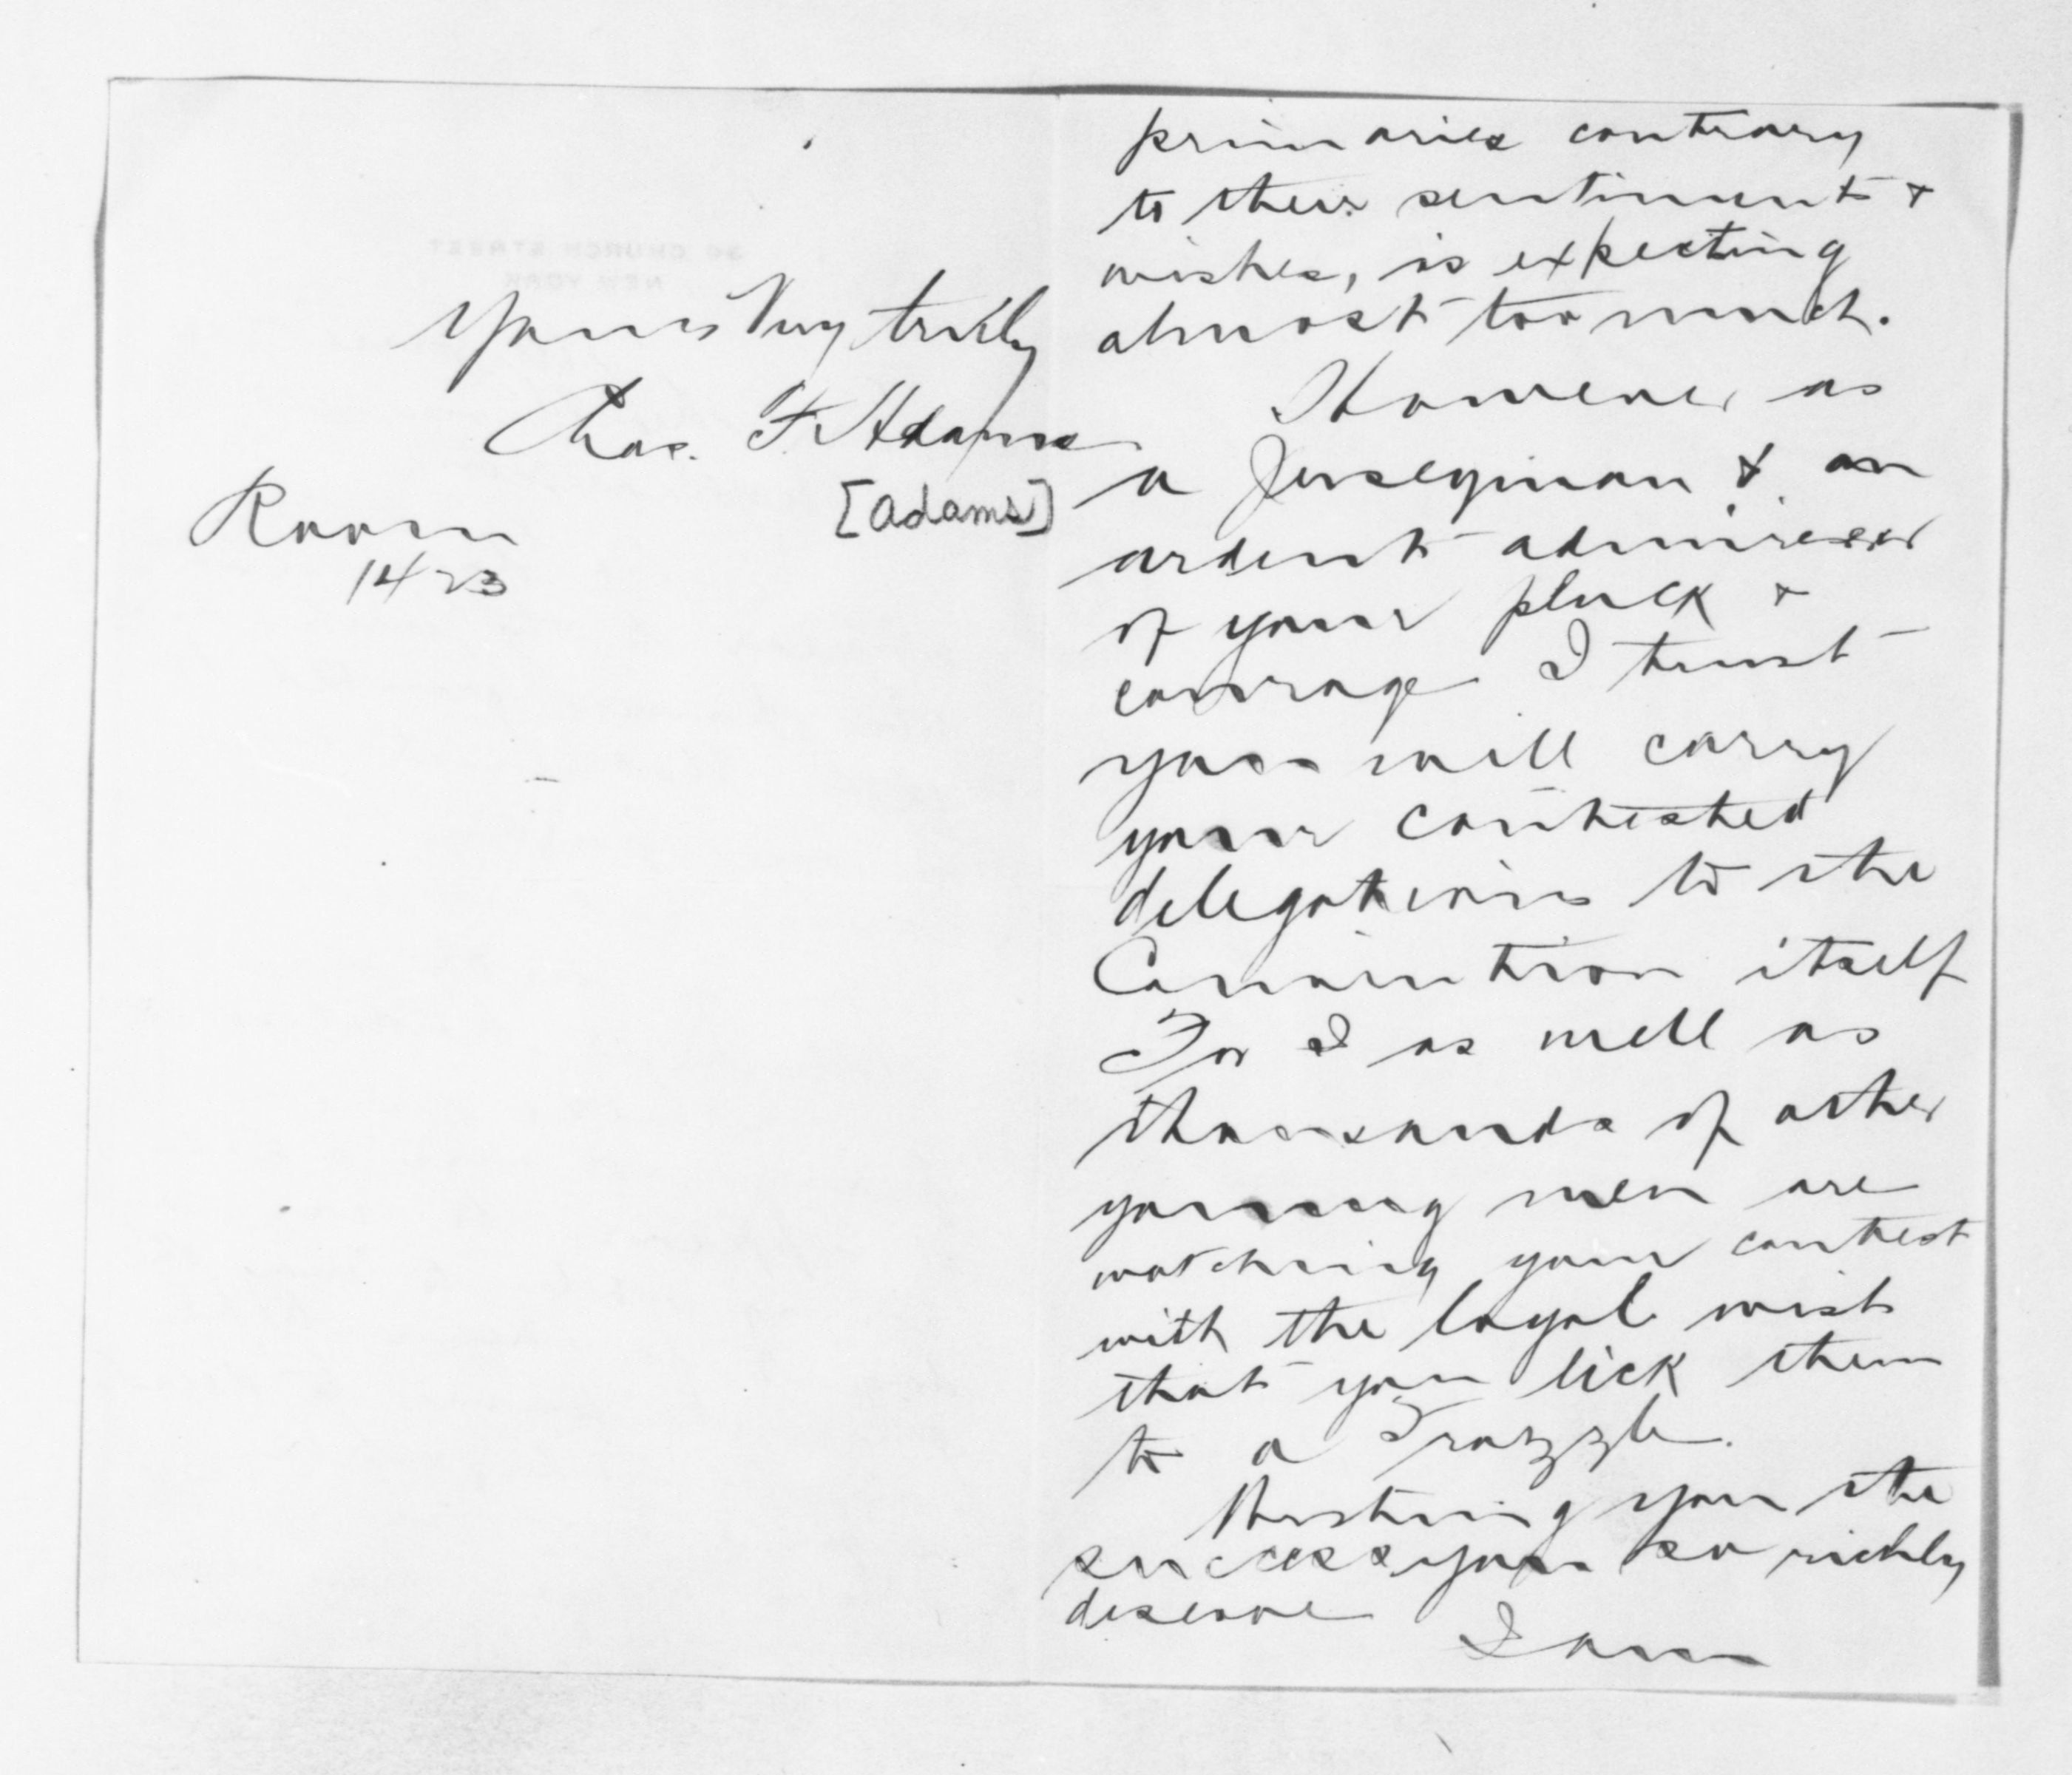 primaries contrary
to their sentiments &
wishes, is expecting
almost too much.
However as
a Jerseyman & an
ardent admirer
of your pluck &
courage I trust
you will carry
your contested
delegations to the
Convention itself
For I as well as
thousands of other
young men are
watching your contest
with the loyal wish
that you lick them
to a Frazzle.
Wishing you the
success you so richly
deserve
I am
30 CHURCH STREET
NEW YORK
Yours Very truly
Chas. F. Adams
[Adams]
Room
1423